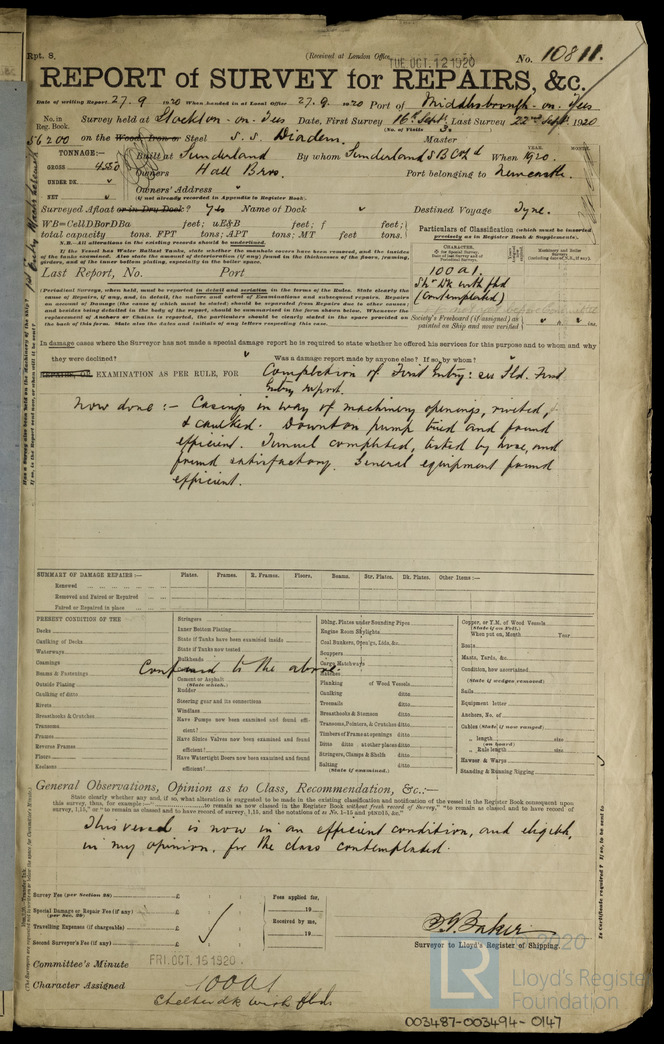 Rpt. 8.
(Received at London Office TUE OCT. 12 1920
No. 10811.
REPORT of SURVEY for REPAIRS, &c.
Date of writing Report 27. 9. 1920 When handed in at Local Office 27. 9. 1920 Port of Middlesbrough-on-Tees
No. in Reg. Book. Survey held at Stockton-on-Tees Date, First Survey 16th Sept. Last Survey 22nd Sept. 1920
(No. of Visits 3)
56200 on the Wood, Iron or Steel S.S. Diadem. Master
TONNAGE:— Built at Sunderland By whom Sunderland S B Co Ld When 1920.
YEAR. MONTH.
GROSS 4550 Owners Hall Bros. Port belonging to Newcastle.
UNDER DK. Owners' Address
NET (if not already recorded in Appendix to Register Book).
Surveyed Afloat or in Dry Dock? Yes Name of Dock Destined Voyage Tyne.
WB=CellDBorDBa feet; uE&B feet; f feet;
total capacity tons. FPT tons; APT tons; MT feet tons.
N.B.—All alterations in the existing records should be underlined.
If the Vessel has Water Ballast Tanks, state whether the manhole covers have been removed, and the insides
of the tanks examined. Also state the amount of deterioration (if any) found in the thickness of the floors, framing,
girders, and of the inner bottom plating, especially in the boiler space.
Particulars of Classification (which must be inserted
precisely as in Register Book & Supplements).
CHARACTER.
Last Report, No. Port
100 A1.
Shr Dk with fbd
(Contemplated)
Society's Freeboard (if assigned) as
painted on Ship and now verified
(Periodical Surveys, when held, must be reported in detail and seriatim in the terms of the Rules. State clearly the
cause of Repairs, if any, and, in detail, the nature and extent of Examinations and subsequent repairs. Repairs
on account of Damage (the cause of which must be stated) should be separated from Repairs due to other causes;
and besides being detailed in the body of the report, should be summarized in the form shown below. Whenever the
Replacements of Anchors or Chains is reported, the particulars should be clearly stated in the space provided on
the back of this form. State also the dates and initials of any letters respecting this case.
In damage cases where the Surveyor has not made a special damage report he is required to state whether he offered his services for this purpose and to whom and why
they were declined? Was a damage report made by anyone else? If so, by whom?
REPAIRS, OR EXAMINATION AS PER RULE, FOR Completion of First Entry: see Sld. First
Entry report.
Now done:— Casings in way of machinery openings, riveted,
& caulked. Downton pump tried and found
efficient. Tunnel completed, tested by hose, and
found satisfactory. General equipment found
efficient.
SUMMARY OF DAMAGE REPAIRS:— Plates. Frames. R. Frames. Floors. Beams. Str. Plates. Dk. Plates. Other Items:—
Renewed
Removed and Faired or Repaired
Faired or Repaired in place
PRESENT CONDITION OF THE
Decks
Caulking of Decks
Waterways
Coamings
Beams & Fastenings
Outside Plating
Caulking of ditto
Rivets
Breasthooks & Crutches
Transoms
Frames
Reverse Frames
Floors
Keelsons
Stringers
Inner Bottom Plating
State if Tanks have been examined inside
State if Tanks now tested
Bulkheads
Confined to the above.
Cement or Asphalt
(State which.)
Rudder
Steering gear and its connections
Windlass
Have Pumps now been examined and found efficient?
Have Sluice Valves now been examined and found efficient?
Have Watertight Doors now been examined and found efficient?
Dblng. Plates under Sounding Pipes
Engine Room Skylights
Coal Bunkers, Open'gs, Lids, &c.
Scuppers
Cargo Hatchways
Hatches
Planking of Wood Vessels
Caulking ditto
Treenails ditto
Breasthooks & Stemson ditto
Transoms, Pointers, & Crutches ditto
Timbers of Frame at openings ditto
Ditto ditto at other places ditto
Stringers, Clamps & Shelfs ditto
Salting ditto
(State if examined.)
Copper, or Y.M. of Wood Vessels
(State if on Felt.)
When put on, Month Year
Boats
Masts, Yards, &c.
Condition, how ascertained
(State if wedges removed)
Sails
Equipment letter
Anchors, No. of
Cables (State if now ranged)
" length size
(on board)
" Rule length size
Hawser & Warps
Standing & Running Rigging
General Observations, Opinion as to Class, Recommendation, &c.:—
This vessel is now in an efficient condition, and eligible,
in my opinion, for the class contemplated.
Survey Fee (per Section 28) £
Special Damage or Repair Fee (if any) £
(per Sec. 28)
Travelling Expenses (if chargeable) £
Second Surveyor's Fee (if any) £
Fees applied for,
19
Received by me,
19
Surveyor to Lloyd's Register of Shipping.
Committee's Minute FRI. OCT. 15 1920
Character Assigned 100A1
Shelter dk with fbd
© 2020
LR
Lloyd's Register
Foundation
003487-003494-0147